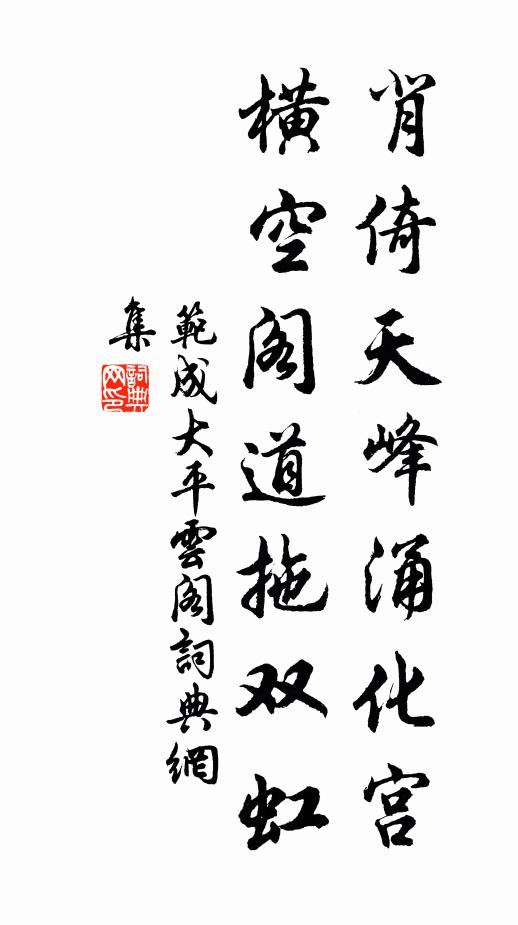 背倚天峰涌化宫
横空阁道拖双虹
範成大平雲阁詞典網
集
詞典网印